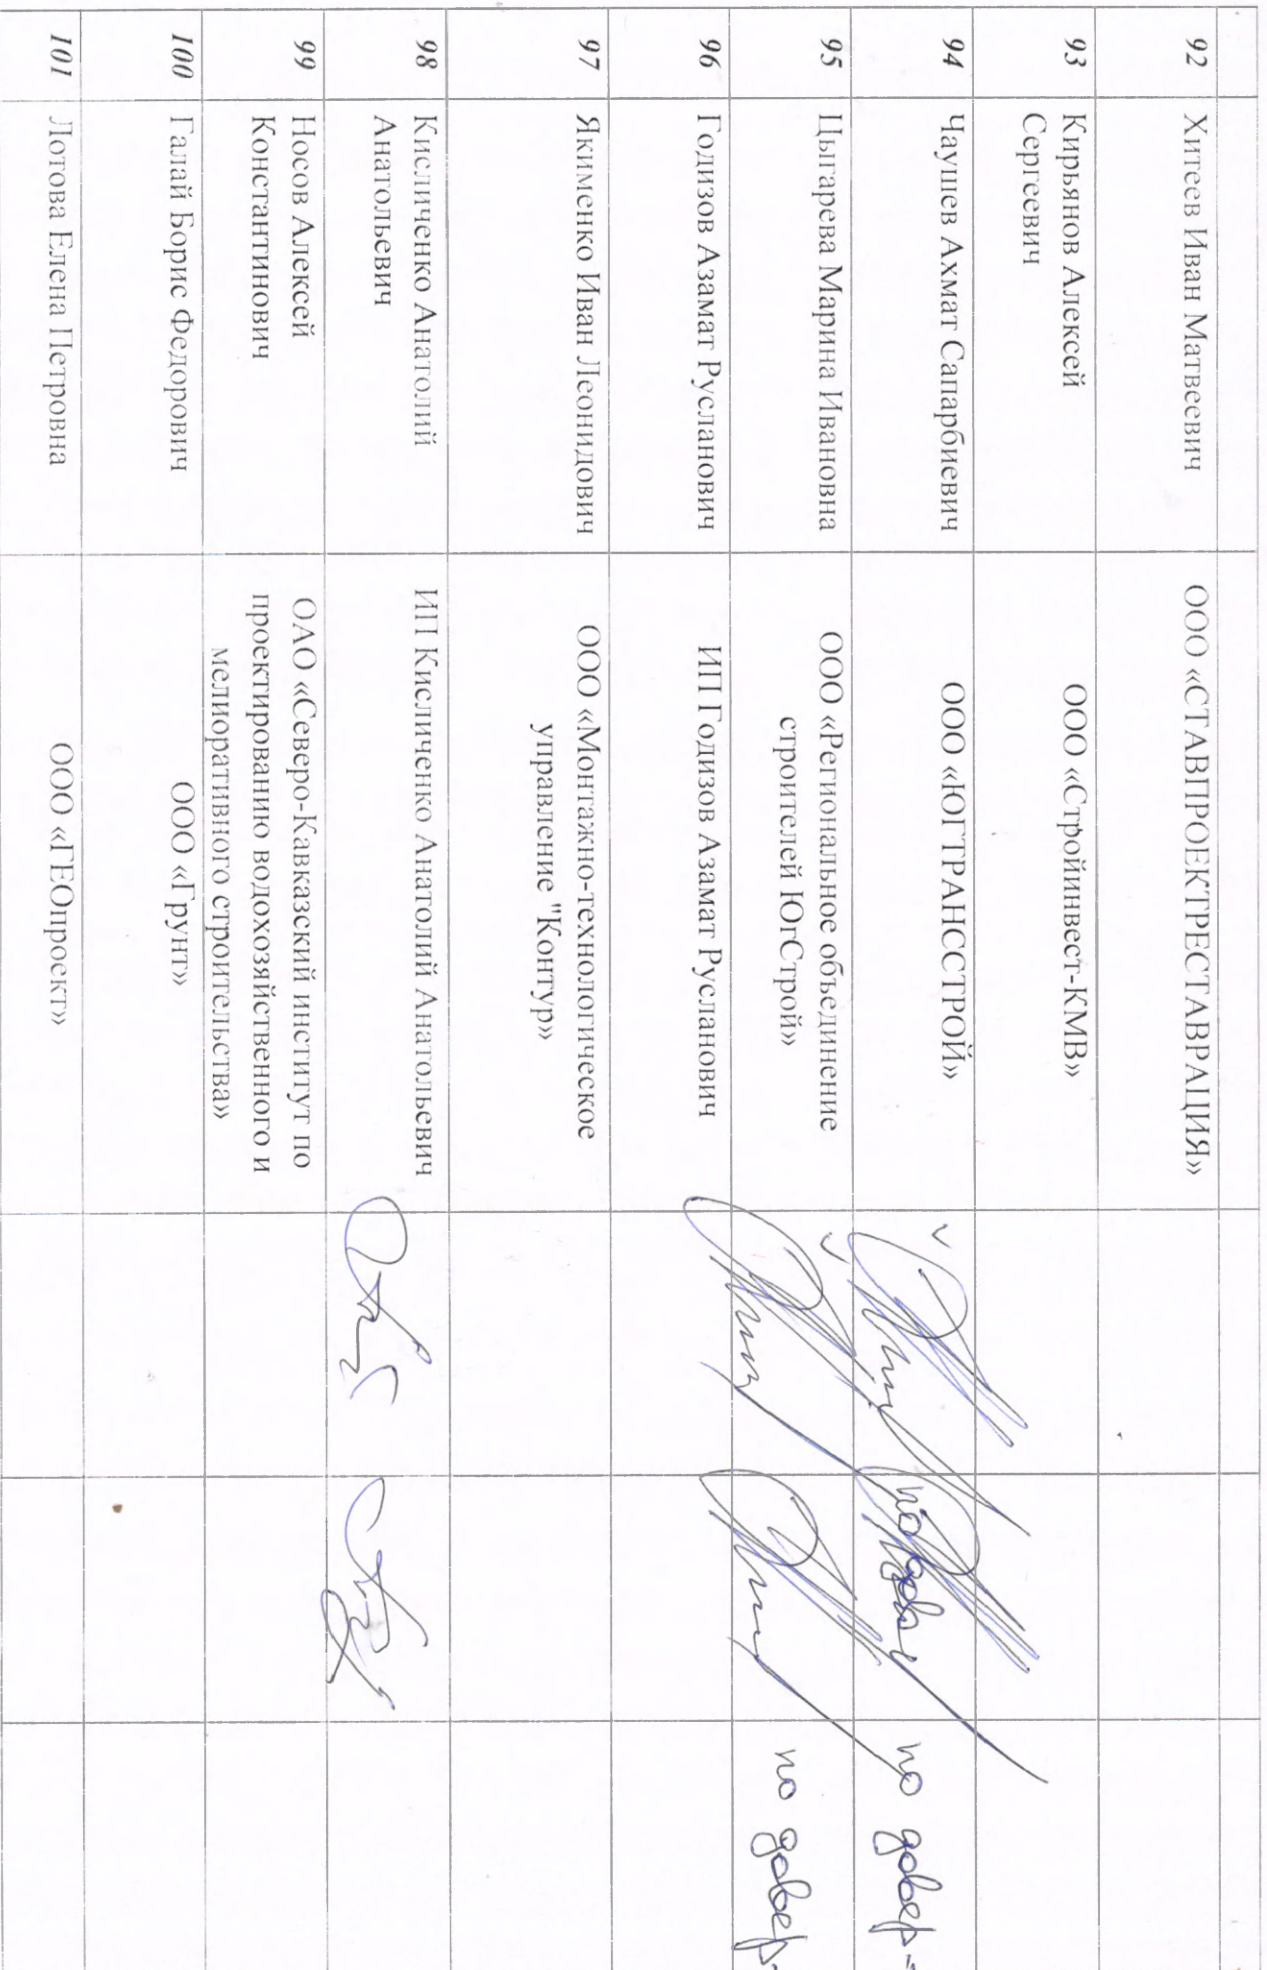 92
Хитеев Иван Матвеевич
ООО «СТАВПРОЕКТРЕСТАВРАЦИЯ»
93
Кирьянов Алексей
Сергеевич
ООО «Стройинвест-КМВ»
94
Чаушев Ахмат Сапарбиевич
ООО «ЮГТРАНССТРОЙ»
по довер-
95
Цыгарева Марина Ивановна
ООО «Региональное объединение
строителей ЮгСтрой»
по довер-
96
Годизов Азамат Русланович
ИП Годизов Азамат Русланович
97
Якименко Иван Леонидович
ООО «Монтажно-технологическое
управление "Контур»
98
Кисличенко Анатолий
Анатольевич
ИП Кисличенко Анатолий Анатольевич
99
Носов Алексей
Константинович
ОАО «Северо-Кавказский институт по
проектированию водохозяйственного и
мелиоративного строительства»
100
Галай Борис Федорович
ООО «Грунт»
101
Лотова Елена Петровна
ООО «ГЕОпроект»